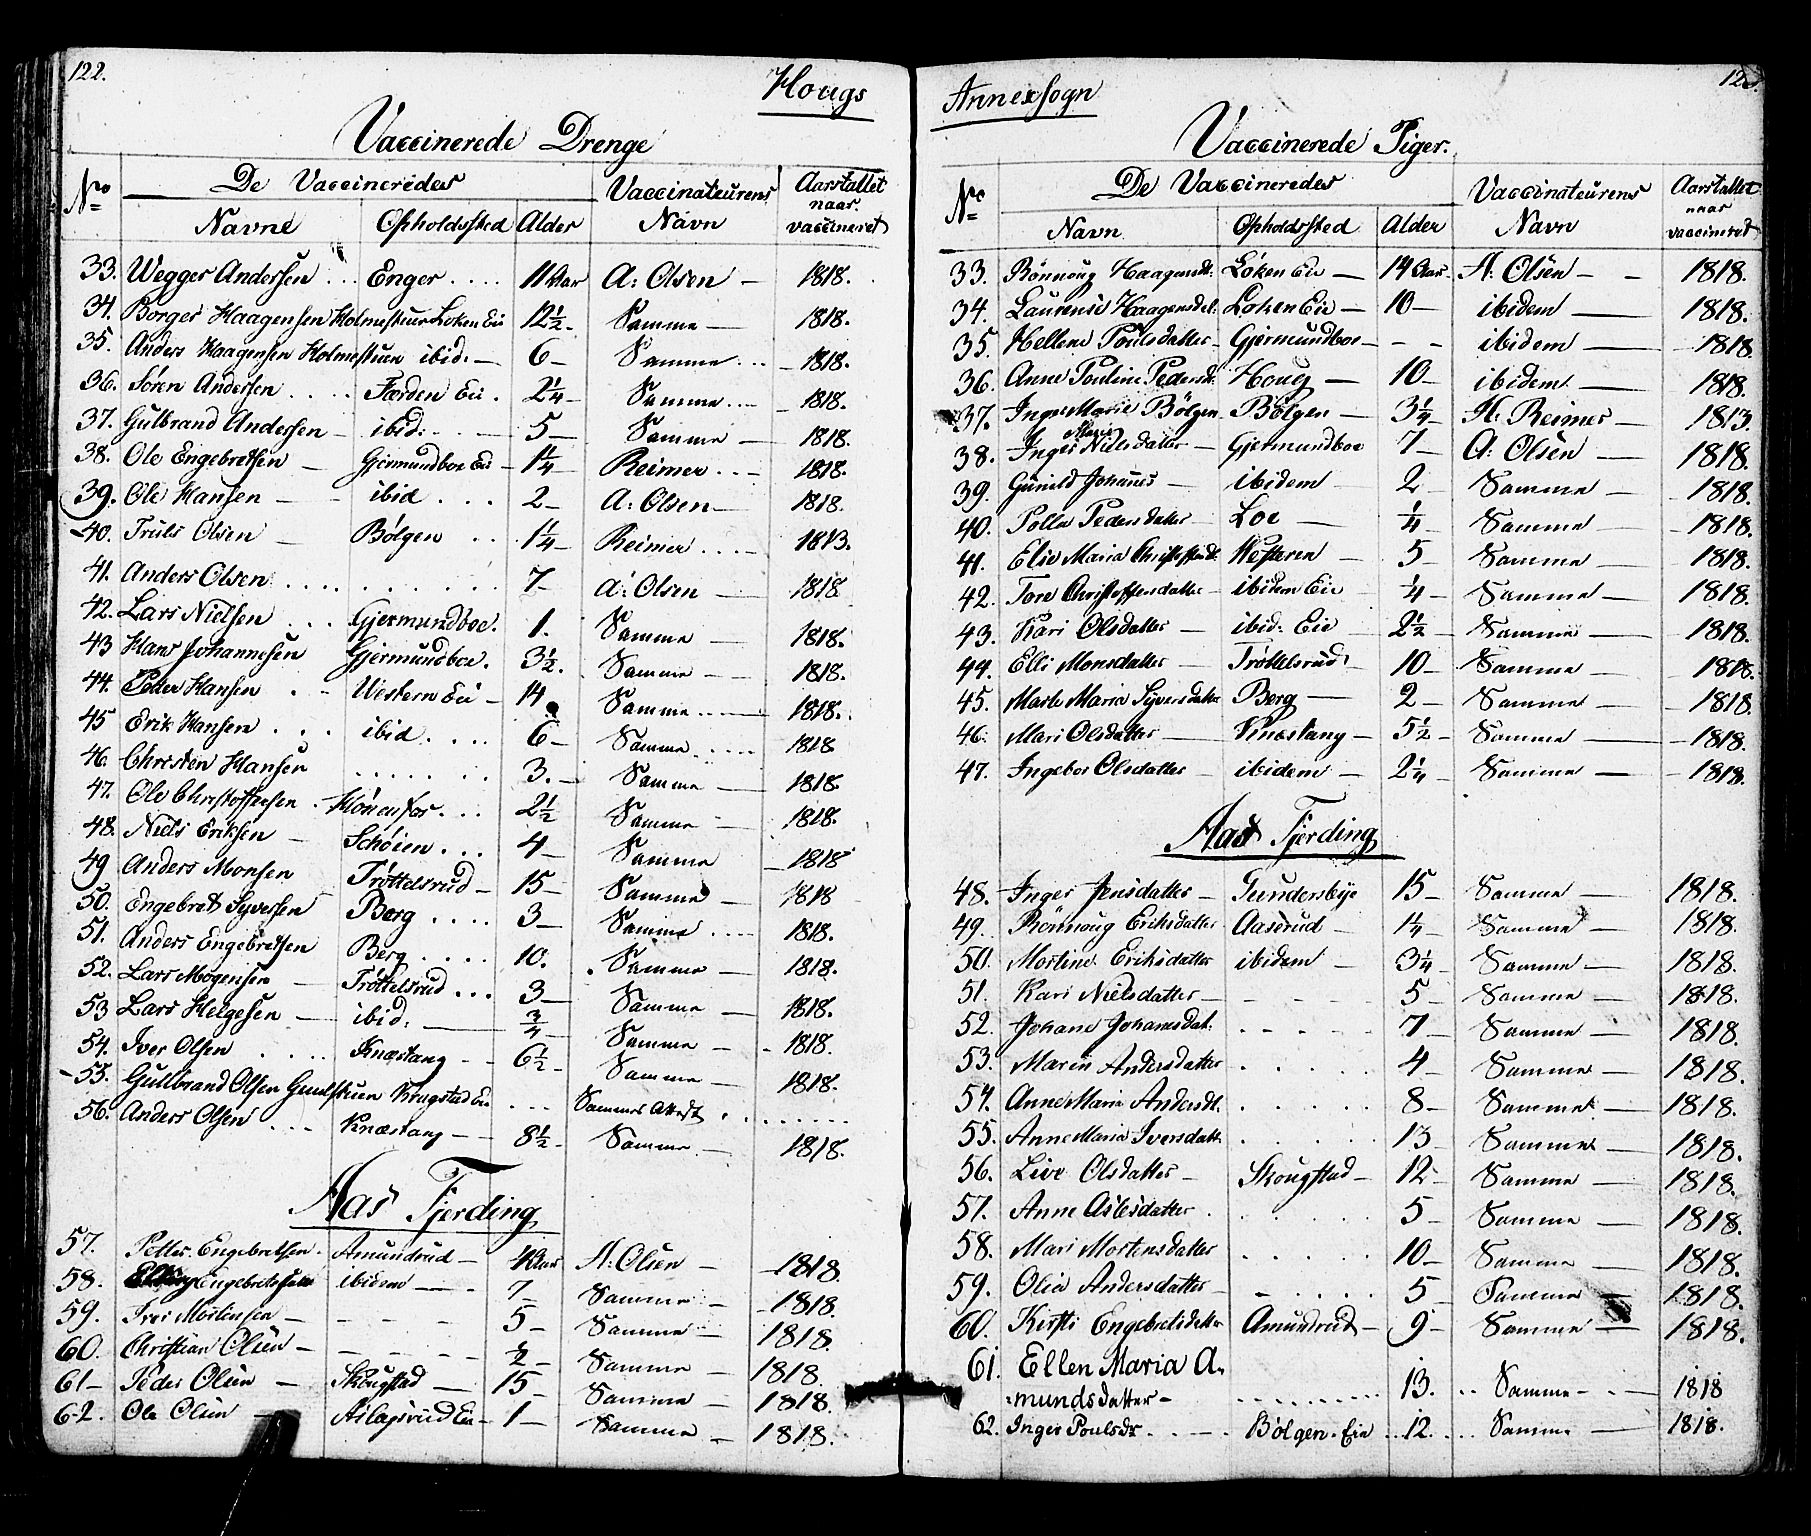 122.
Hougs
Vaccinerede Drenge
No
De Vaccineredes
Vaccinateurens
Aarstallet
Navne Opholdssted Alder Navn naar vaccineret
33. Wegger Andersen ... Enger .... 11 Aar A: Olsen — 1818.
34. Borger Haagensen Holmestuen Løken Eie 12½- Samme — 1818.
35. Anders Haagensen Holmestuen ibid: — 6 — Samme ... 1818.
36. Søren Andersen .... Færden Eie . 2¼ — Samme ... 1818.
37. Gulbrand Andersen — ibid: — 5 — Samme — 1818.
38. Ole Engebretsen — Gjermundboe Eie — 1¼ Reimer ... 1818.
39. Ole Hansen — ibid .... 2 — A: Olsen — 1818.
40. Truls Olsen — Bølgen .. 1¼ — Reimer .... 1813.
41. Anders Olsen .......... 7 — A: Olsen — 1818
42. Lars Nielsen ... Gjermundboe. 1. Samme — 1818.
43 Hans Johannesen Gjermundboe. 3½. Samme — 1818.
44. Peder Hansen . - Western Eie — 14 Samme .... 1818.
45 Erik Hansen .... ibid .... 6 — Samme .... 1818
46. Christen Hansen ...... 3. — Samme — 1818.
47. Ole Christoffersen . Hønenfos ... 2½ Samme — 1818.
48. Niels Eriksen — Schøien ... 4 — Samme 1818
49 Anders Monsen Trøttelsrud — 15 — Samme — 1818
50. Engebret Syversen Berg .... 3 — Samme .... 1818.
51. Anders Engebretsen Berg .... 10. Samme — 1818.
52. Lars Mogensen — Trøttelsrud ... 3 — Samme — 1818.
53 Lars Helgesen — ibid: — ¾ Samme — 1818.
54. Iver Olsen .... Knæstang — 6½ — Samme — 1818.
55. Gullbrand Olsen Krugstad Eie ... Sammes Attest .......
56. Anders Olsen ... Knæstang — 8½ — Samme — 1818.
Aas Fjerding
57. Petter Engebretsen . Amundrud — 4 Aar A: Olsen — 1818.
58. Engebretsen ibidem — 7 — Samme — 1818.
59. Iver Mortensen — 5 — Samme — 1818.
60. Christian Olsen — ½ — Samme — 1818.
61 — Peder Olsen — Skougstad — 15 — Samme — 1818.
62. Ole Olsen — Aslagsrud Eie — 1 — Samme — 1818.
Annexsogn
Vaccinerede Piger.
No
De Vaccineredes
Vaccinateurens
Aarstallet
Navn Opholdssted Alder Navn naar vaccineret
33. Rønnoug Haagensdt: Løken Eie — 14 Aar. A: Olsen — 1818.
34. Laurense Haagensdt: Løken Eie — 10 — ibidem — 1818.
35. Hellene Poulsdatter — Gjermundboe — - - ibidem — 1818
36. Anne Pouline Pedersdt. Houg — 10 — ibidem — 1818.
37. Inger Marie Bølgen Bølgen — 3¼ — H: Reimer — 1813.
38. Inger Marie Nielsdatter — Gjermundboe 7 — A: Olsen — 1818.
39. Gunild Johannes — ibidem 2 — Samme — 1818.
40. Polla Pedersdatter — Loe — ¼ — Samme — 1818.
41. Elie Maria Christofferdt. Westeren — 5 — Samme — 1818.
42. Tore Christoffersdatter — ibidem Eie — ¼ — Samme — 1818.
43. Kari Olsdatter — ibid: Eie — 2½ — Samme — 1818.
44. Elli Monsdatter — Trøttelsrud 10 — Samme — 1818.
45. Marte Maria Syversdatter Berg — 2 — Samme — 1818.
46. Mari Olsdatter — Knæstang — 5½ — Samme — 1818.
47. Ingebor Olsdatter — ibidem — 2¼ — Samme — 1818.
Aas Fjerding
48. Inger Jensdatter — Gundersbye 15 — Samme — 1818.
49. Rønnoug Eriksdatter Aaserud — 1¼ — Samme — 1818.
50. Mortine Eriksdatter ibidem — 3¼ — Samme — 1818.
51. Kari Nielsdatter — - - 5 — Samme — 1818.
52. Johane Johanesdat. ..... 7 — Samme — 1818.
53. Maria Andersdatter ..... 4 — Samme — 1818.
54. Anne Maria Andersdt. ..... 8 — Samme — 1818.
55. Anne Maria Iversdatt. ..... 13 Samme — 1818.
56. Live Olsdatter — Skougstad — 12 — Samme — 1818.
57. Anne Aslesdatter ..... 5 — Samme — 1818.
58. Mari Mortensdatter ..... 10 — Samme — 1818.
59. Olia Andersdatter — .... 5 — Samme — 1818.
60. Kirsti Engebretsdatter Amundrud — 9 — Samme — 1818.
61. Ellen Maria A-
mundsdatter — ........ 13. .. Samme — 1818
62. Inger Poulsdr ..... Bølgen Eie .. 12. ... Samme — 1818.